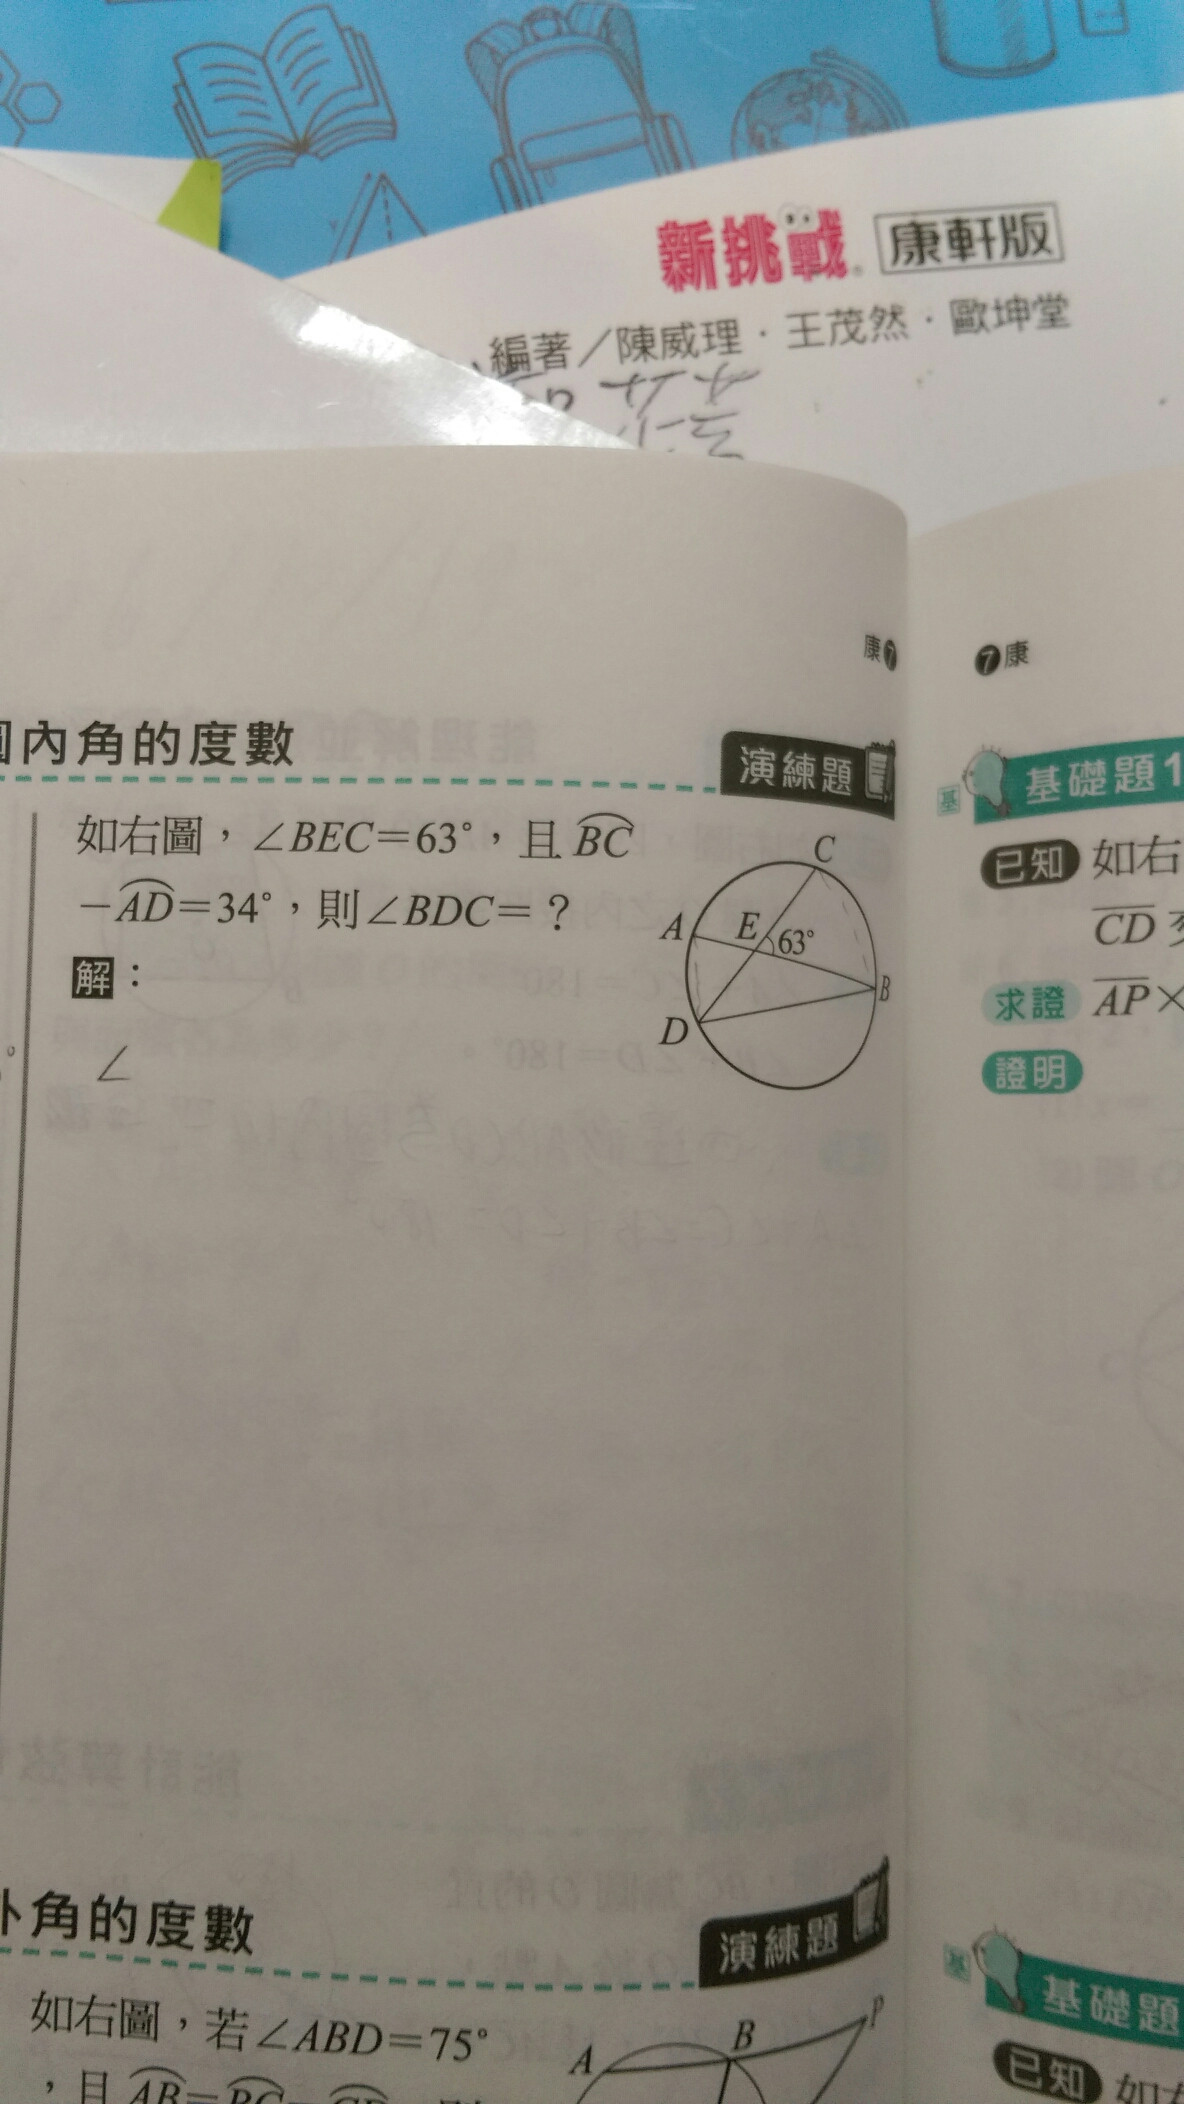 新挑戰 康軒版
編著／陳威理．王茂然．歐坤堂
康7
7康
內角的度數
演練題
如右圖，∠BEC＝63°，且BC
－AD＝34°，則∠BDC＝？
解：
∠
C
A
E
63°
B
D
基
基礎題1
已知 如右
CD
求證 AP×
證明
角的度數
演練題
如右圖，若∠ABD＝75°
，且AB＝BC＝CD
P
B
A
基
基礎題
已知